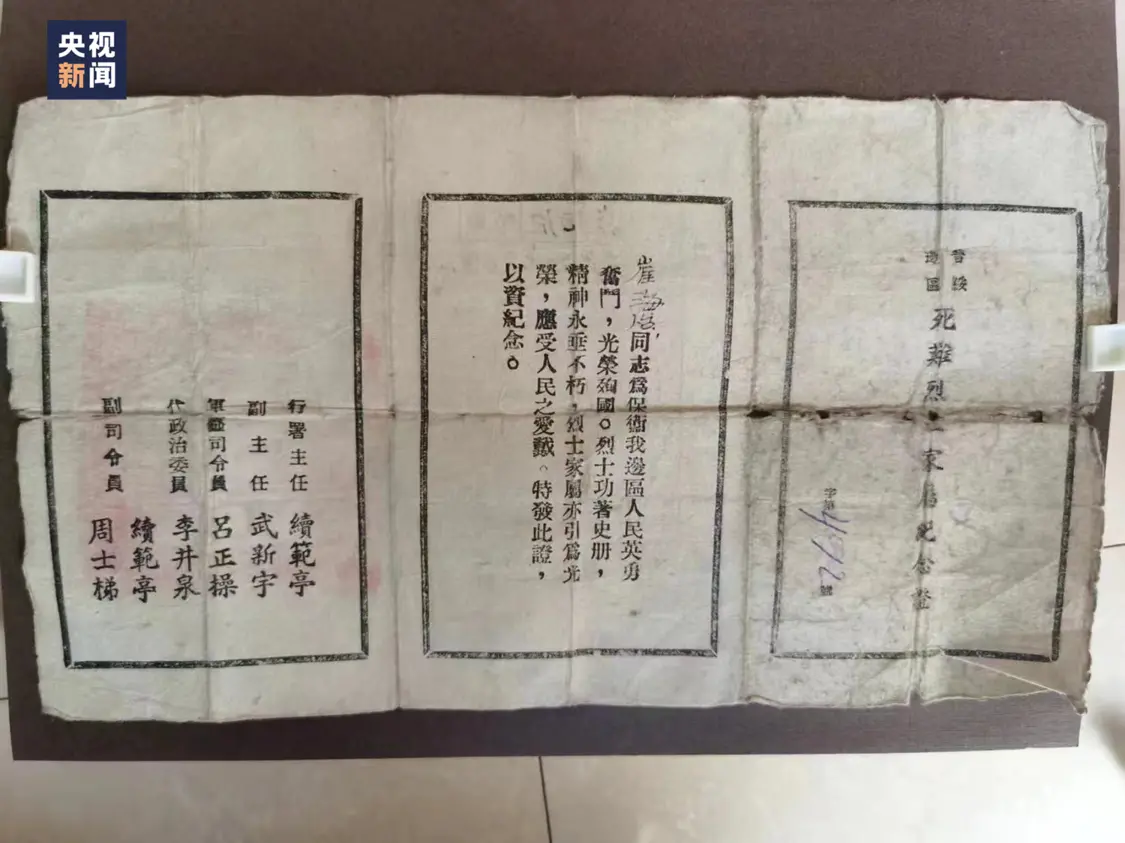 央视
新闻
晉綏
邊區
死難烈士家屬紀念證
字第
號
崔海 同志爲保衛我邊區人民英勇
奮鬥，光榮殉國。烈士功著史册，
精神永垂不朽，烈士家屬亦引爲光
榮，應受人民之愛戴。特發此證，
以資紀念。
行署主任 續範亭
副主任 武新宇
軍區司令員 呂正操
代政治委員 李井泉
副司令員 續範亭
周士梯